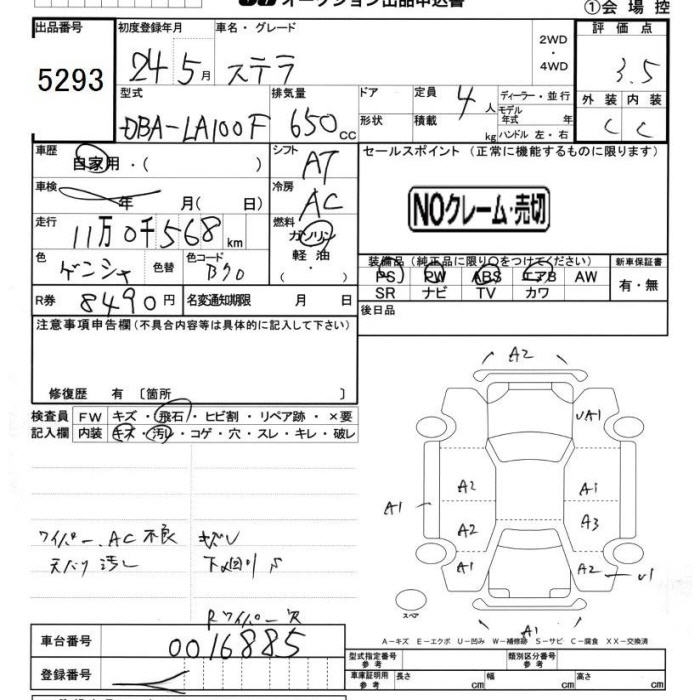 オークション出品申込書
①会場控
出品番号 初度登録年月 車名・グレード 2WD・4WD 評価点
5293 24年5月 ステラ 3.5
型式 排気量 ドア 定員 4人 ディーラー・並行 外装 内装
DBA-LA100F 650cc 形状 積載 kg モデル年式 年 ハンドル 左・右 C C
車歴 自家用・( ) シフト AT セールスポイント (正常に機能するものに限ります)
車検 年 月( 日) 冷房 AC
NOクレーム・売切
走行 11万0千568km 燃料 ガソリン・軽油・( )
色 ゲンシャ 色替 色コード B70
装備品 (純正品に限り○をつけてください) 新車保証書
PS PW ABS エアB AW 有・無
SR ナビ TV カワ
R券 8490円 名変通知期限 月 日
後日品
注意事項申告欄(不具合内容等は具体的に記入して下さい)
修復歴 有 〔箇所 〕
検査員記入欄 FW キズ・飛石・ヒビ割・リペア跡・×要
内装 キズ・汚レ・コゲ・穴・スレ・キレ・破レ
ワイパー、AC不良 キズU
天バリ汚し 下回りS
Rワイパー欠
A2
UA1
A2 A1
A1
A2 A3
A1 A2 U1
スペア
A1
A-キズ E-エクボ U-凹み W-補修跡 S-サビ C-腐食 XX-交換済
車台番号 0016885
登録番号
型式指定番号 参考 類別区分番号 参考
車庫証明用 参考 長さ cm 幅 cm 高さ cm